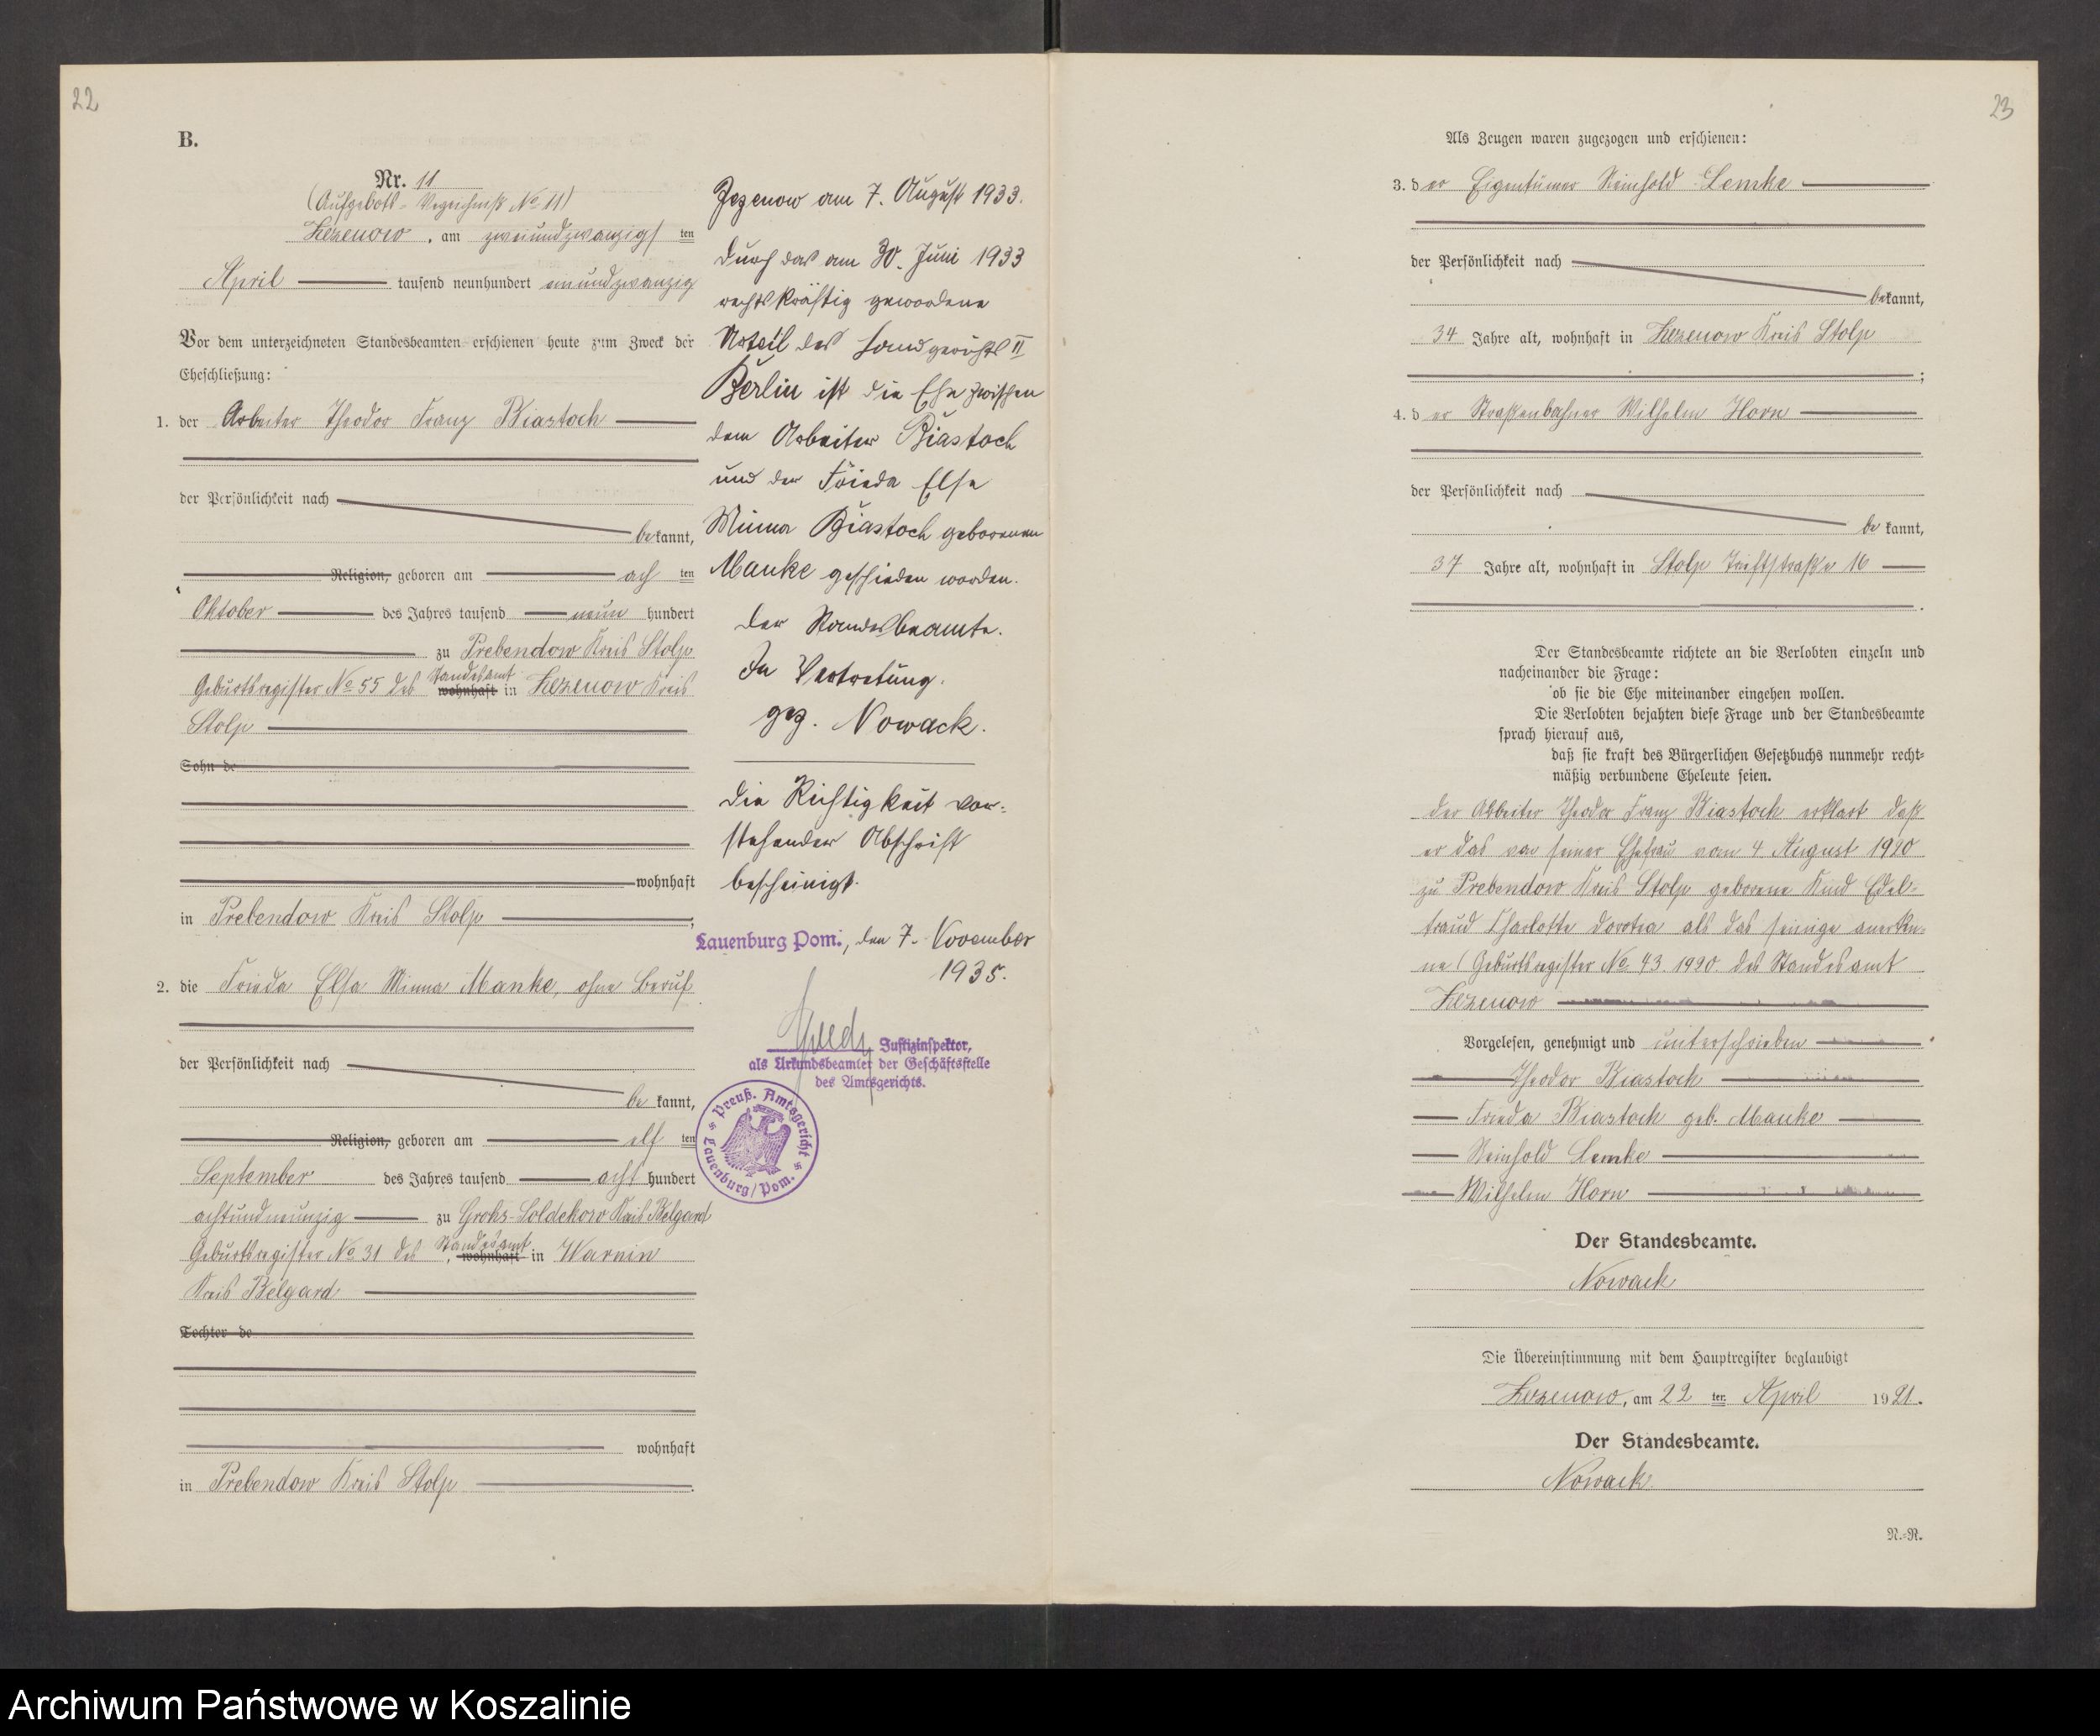 22
B.
Nr. 11
(Aufgebots-Verzeichniß No 11)
Zezenow, am zweiundzwanzigsten
April tausend neunhundert einundzwanzig
Vor dem unterzeichneten Standesbeamten erschienen heute zum Zweck der
Eheschließung:
1. der Arbeiter Theodor Franz Biastoch
der Persönlichkeit nach
bekannt,
Religion, geboren am achten
Oktober des Jahres tausend neun hundert
zu Prebendow Kreis Stolp
Geburtsregister No 55 des Standesamt wohnhaft in Zezenow Kreis
Stolp
Sohn de
wohnhaft
in Prebendow Kreis Stolp;
2. die Frieda Elsa Minna Manke, ohne Beruf
der Persönlichkeit nach
bekannt,
Religion, geboren am elften
September des Jahres tausend acht hundert
achtundneunzig zu Groß-Soldekow Kreis Belgard
Geburtsregister No 31 des Standesamt, wohnhaft in Warnin
Kreis Belgard
Tochter de
wohnhaft
in Prebendow Kreis Stolp.
Zezenow am 7. August 1933.
Durch das am 30. Juni 1933
rechtskräftig gewordene
Urteil des Landgerichts II
Berlin ist die Ehe zwischen
dem Arbeiter Biastoch
und der Frieda Else
Minna Biastoch geborenen
Manke geschieden worden.
Der Standesbeamte.
In Vertretung.
gez. Nowack.
Die Richtigkeit vor-
stehender Abschrift
bescheinigt.
Lauenburg Pom., den 7. November
1935.
Justizinspektor,
als Urkundsbeamter der Geschäftsstelle
des Amtsgerichts.
Preuß. Amtsgericht
Lauenburg/Pom.
23
Als Zeugen waren zugezogen und erschienen:
3. der Eigentümer Reinhold Lemke
der Persönlichkeit nach
bekannt,
34 Jahre alt, wohnhaft in Zezenow Kreis Stolp
;
4. der Straßenbahner Wilhelm Horn
der Persönlichkeit nach
bekannt,
37 Jahre alt, wohnhaft in Stolp Triftstraße 16
.
Der Standesbeamte richtete an die Verlobten einzeln und
nacheinander die Frage:
ob sie die Ehe miteinander eingehen wollen.
Die Verlobten bejahten diese Frage und der Standesbeamte
sprach hierauf aus,
daß sie kraft des Bürgerlichen Gesetzbuchs nunmehr recht-
mäßig verbundene Eheleute seien.
Der Arbeiter Theodor Franz Biastoch erklärt daß
er das von seiner Ehefrau vom 4 August 1920
zu Prebendow Kreis Stolp geborene Kind Edel-
traud Charlotte Dorotea als das seinige anerken-
ne (Geburtsregister No 43. 1920. des Standesamt
Zezenow
Vorgelesen, genehmigt und unterschrieben
Theodor Biastoch
Frieda Biastoch geb. Manke
Reinhold Lemke
Wilhelm Horn
Der Standesbeamte.
Nowack
Die Übereinstimmung mit dem Hauptregister beglaubigt
Zezenow, am 22 ten April 1921.
Der Standesbeamte.
Nowack.
N.-R.
Archiwum Państwowe w Koszalinie